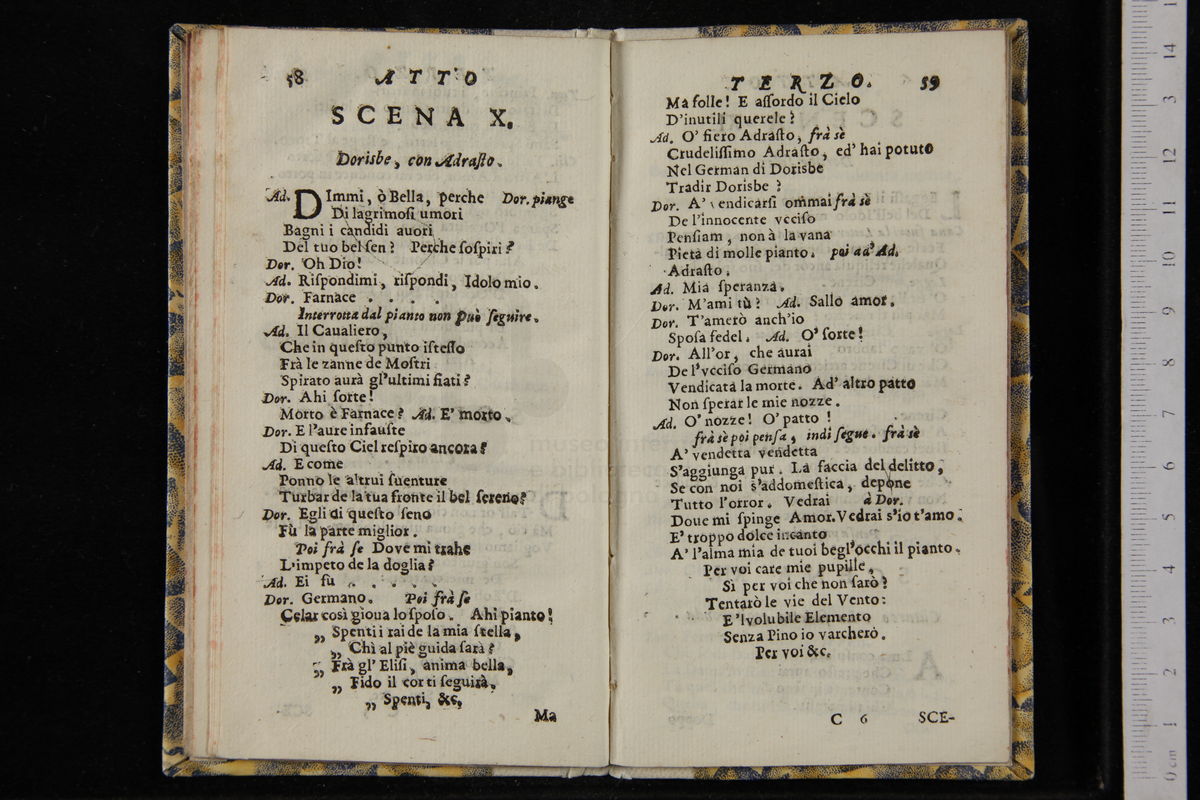 58 ATTO
SCENA X.
Dorisbe, con Adraſto.
Ad. DImmi, ò Bella, perche Dor. piange
Di lagrimoſi umori
Bagni i candidi auori
Del tuo bel ſen? Perche ſoſpiri?
Dor. Oh Dio!
Ad. Riſpondimi, riſpondi, Idolo mio.
Dor. Farnace . . . .
Interrotta dal pianto non può ſeguire.
Ad. Il Caualiero,
Che in queſto punto iſteſſo
Frà le zanne de Moſtri
Spirato aurà gl'ultimi fiati?
Dor. Ahi ſorte!
Morto è Farnace? Ad. E' morto.
Dor. E l'aure infauſte
Di queſto Ciel reſpiro ancora?
Ad. E come
Ponno le altrui ſuenture
Turbar de la tua fronte il bel ſereno?
Dor. Egli di queſto ſeno
Fù la parte miglior.
Poi frà ſe Dove mi trahe
L'impeto de la doglia?
Ad. Ei fù . . . . .
Dor. Germano. Poi frà ſe
Celar così gioua lo ſpoſo. Ahi pianto!
„ Spenti i rai de la mia ſtella,
„ Chì al piè guida ſarà?
„ Frà gl' Eliſi, anima bella,
„ Fido il cor ti ſeguirà.
„ Spenti, &c.
Ma
TERZO. 59
Ma folle! E aſſordo il Cielo
D'inutili querele?
Ad. O' fiero Adraſto, frà sè
Crudeliſſimo Adraſto, ed' hai potuto
Nel German di Dorisbe
Tradir Dorisbe?
Dor. A' vendicarſi ommai frà sè
De l'innocente vcciſo
Penſiam, non à la vana
Pietà di molle pianto. poi ad' Ad.
Adraſto.
Ad. Mia ſperanza.
Dor. M'ami tù? Ad. Sallo amor.
Dor. T'amerò anch'io
Spoſa fedel. Ad. O' ſorte!
Dor. All'or, che aurai
De l'vcciſo Germano
Vendicata la morte. Ad' altro patto
Non ſperar le mie nozze.
Ad. O' nozze! O' patto!
frà sè poi penſa, indi ſegue. frà sè
A' vendetta vendetta
S'aggiunga pur. La faccia del delitto,
Se con noi s'addomeſtica, depone
Tutto l'orror. Vedrai à Dor.
Doue mi ſpinge Amor. Vedrai s'io t'amo.
E' troppo dolce incanto
A' l'alma mia de tuoi begl'occhi il pianto.
Per voi care mie pupille,
Sì per voi che non farò?
Tentarò le vie del Vento:
E 'l volubile Elemento
Senza Pino io varcherò.
Per voi &c.
C 6 SCE-